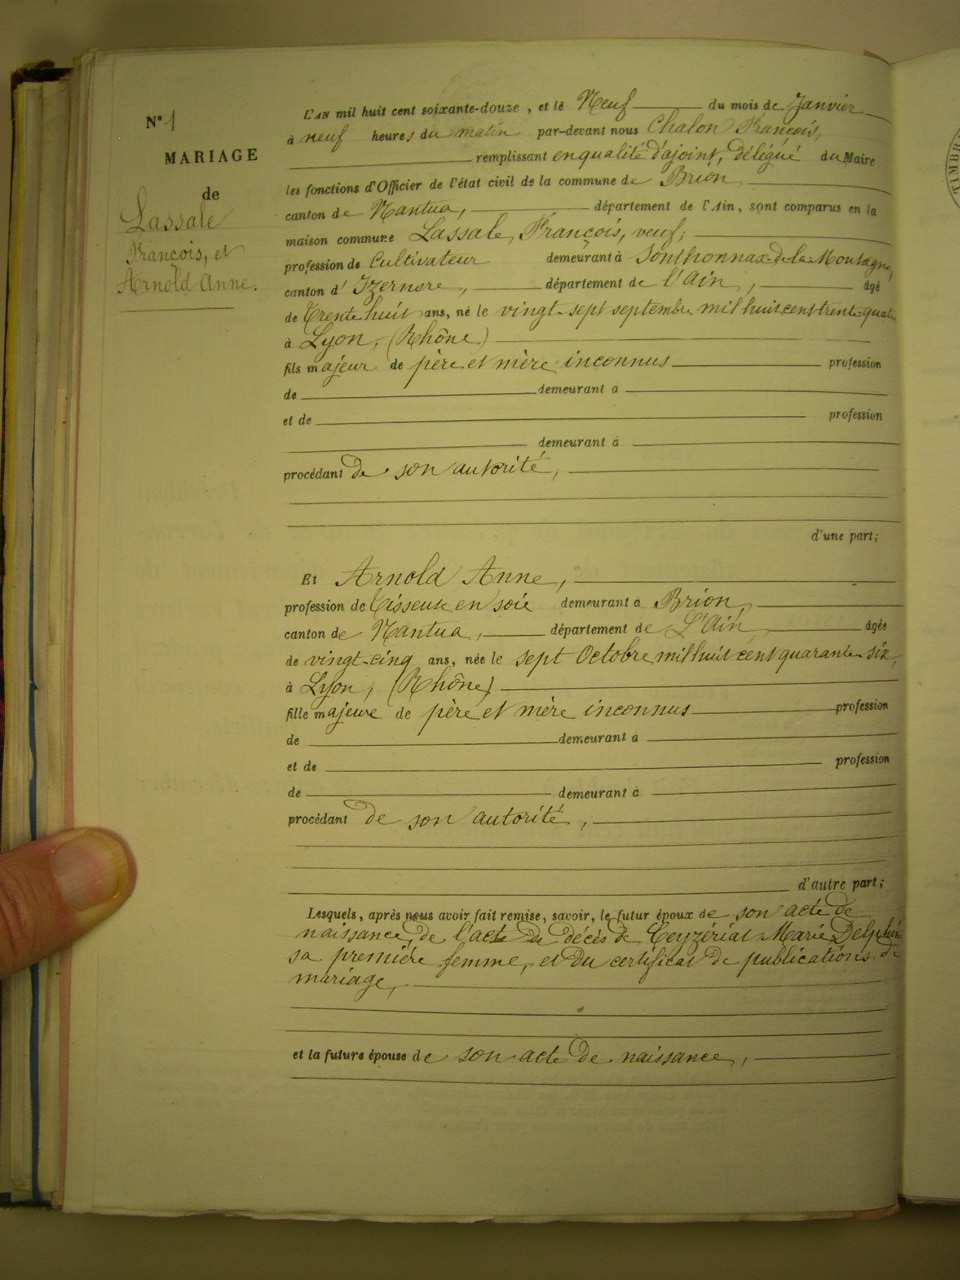 N° 1
MARIAGE
de
Lassale
François, et
Arnold Anne.
L'AN mil huit cent soixante-douze, et le Neuf du mois de Janvier
à neuf heures du matin par-devant nous Chalon François,
remplissant en qualité d'ajoint, délégué du Maire
les fonctions d'Officier de l'état civil de la commune de Brion
canton de Nantua, département de l'Ain, sont comparus en la
maison commune Lassale, François, veuf,
profession de Cultivateur demeurant à Sonthonnax-de-la-Montagne,
canton d'Izernore, département de l'Ain, âgé
de Trente huit ans, né le vingt-sept septembre mil huit cent trente quatre
à Lyon, (Rhône)
fils majeur de père et mère inconnus profession
de demeurant a
et de profession
demeurant à
procédant de son autorité,
d'une part;
Et Arnold Anne,
profession de Tisseuse en soie demeurant a Brion,
canton de Nantua, département de L'Ain âgée
de vingt-cinq ans, née le sept Octobre mil huit cent quarante-six,
à Lyon, (Rhône)
fille majeure de père et mère inconnus profession
de demeurant a
et de profession
de demeurant à
procédant de son autorité,
d'autre part;
Lesquels, après nous avoir fait remise, savoir, le futur époux de son acte de
naissance, de l'acte de décès de Ceyzériat Marie Delphine
sa première femme, et du certificat de publications de
mariage,
et la future épouse de son acte de naissance,
TIMBRE